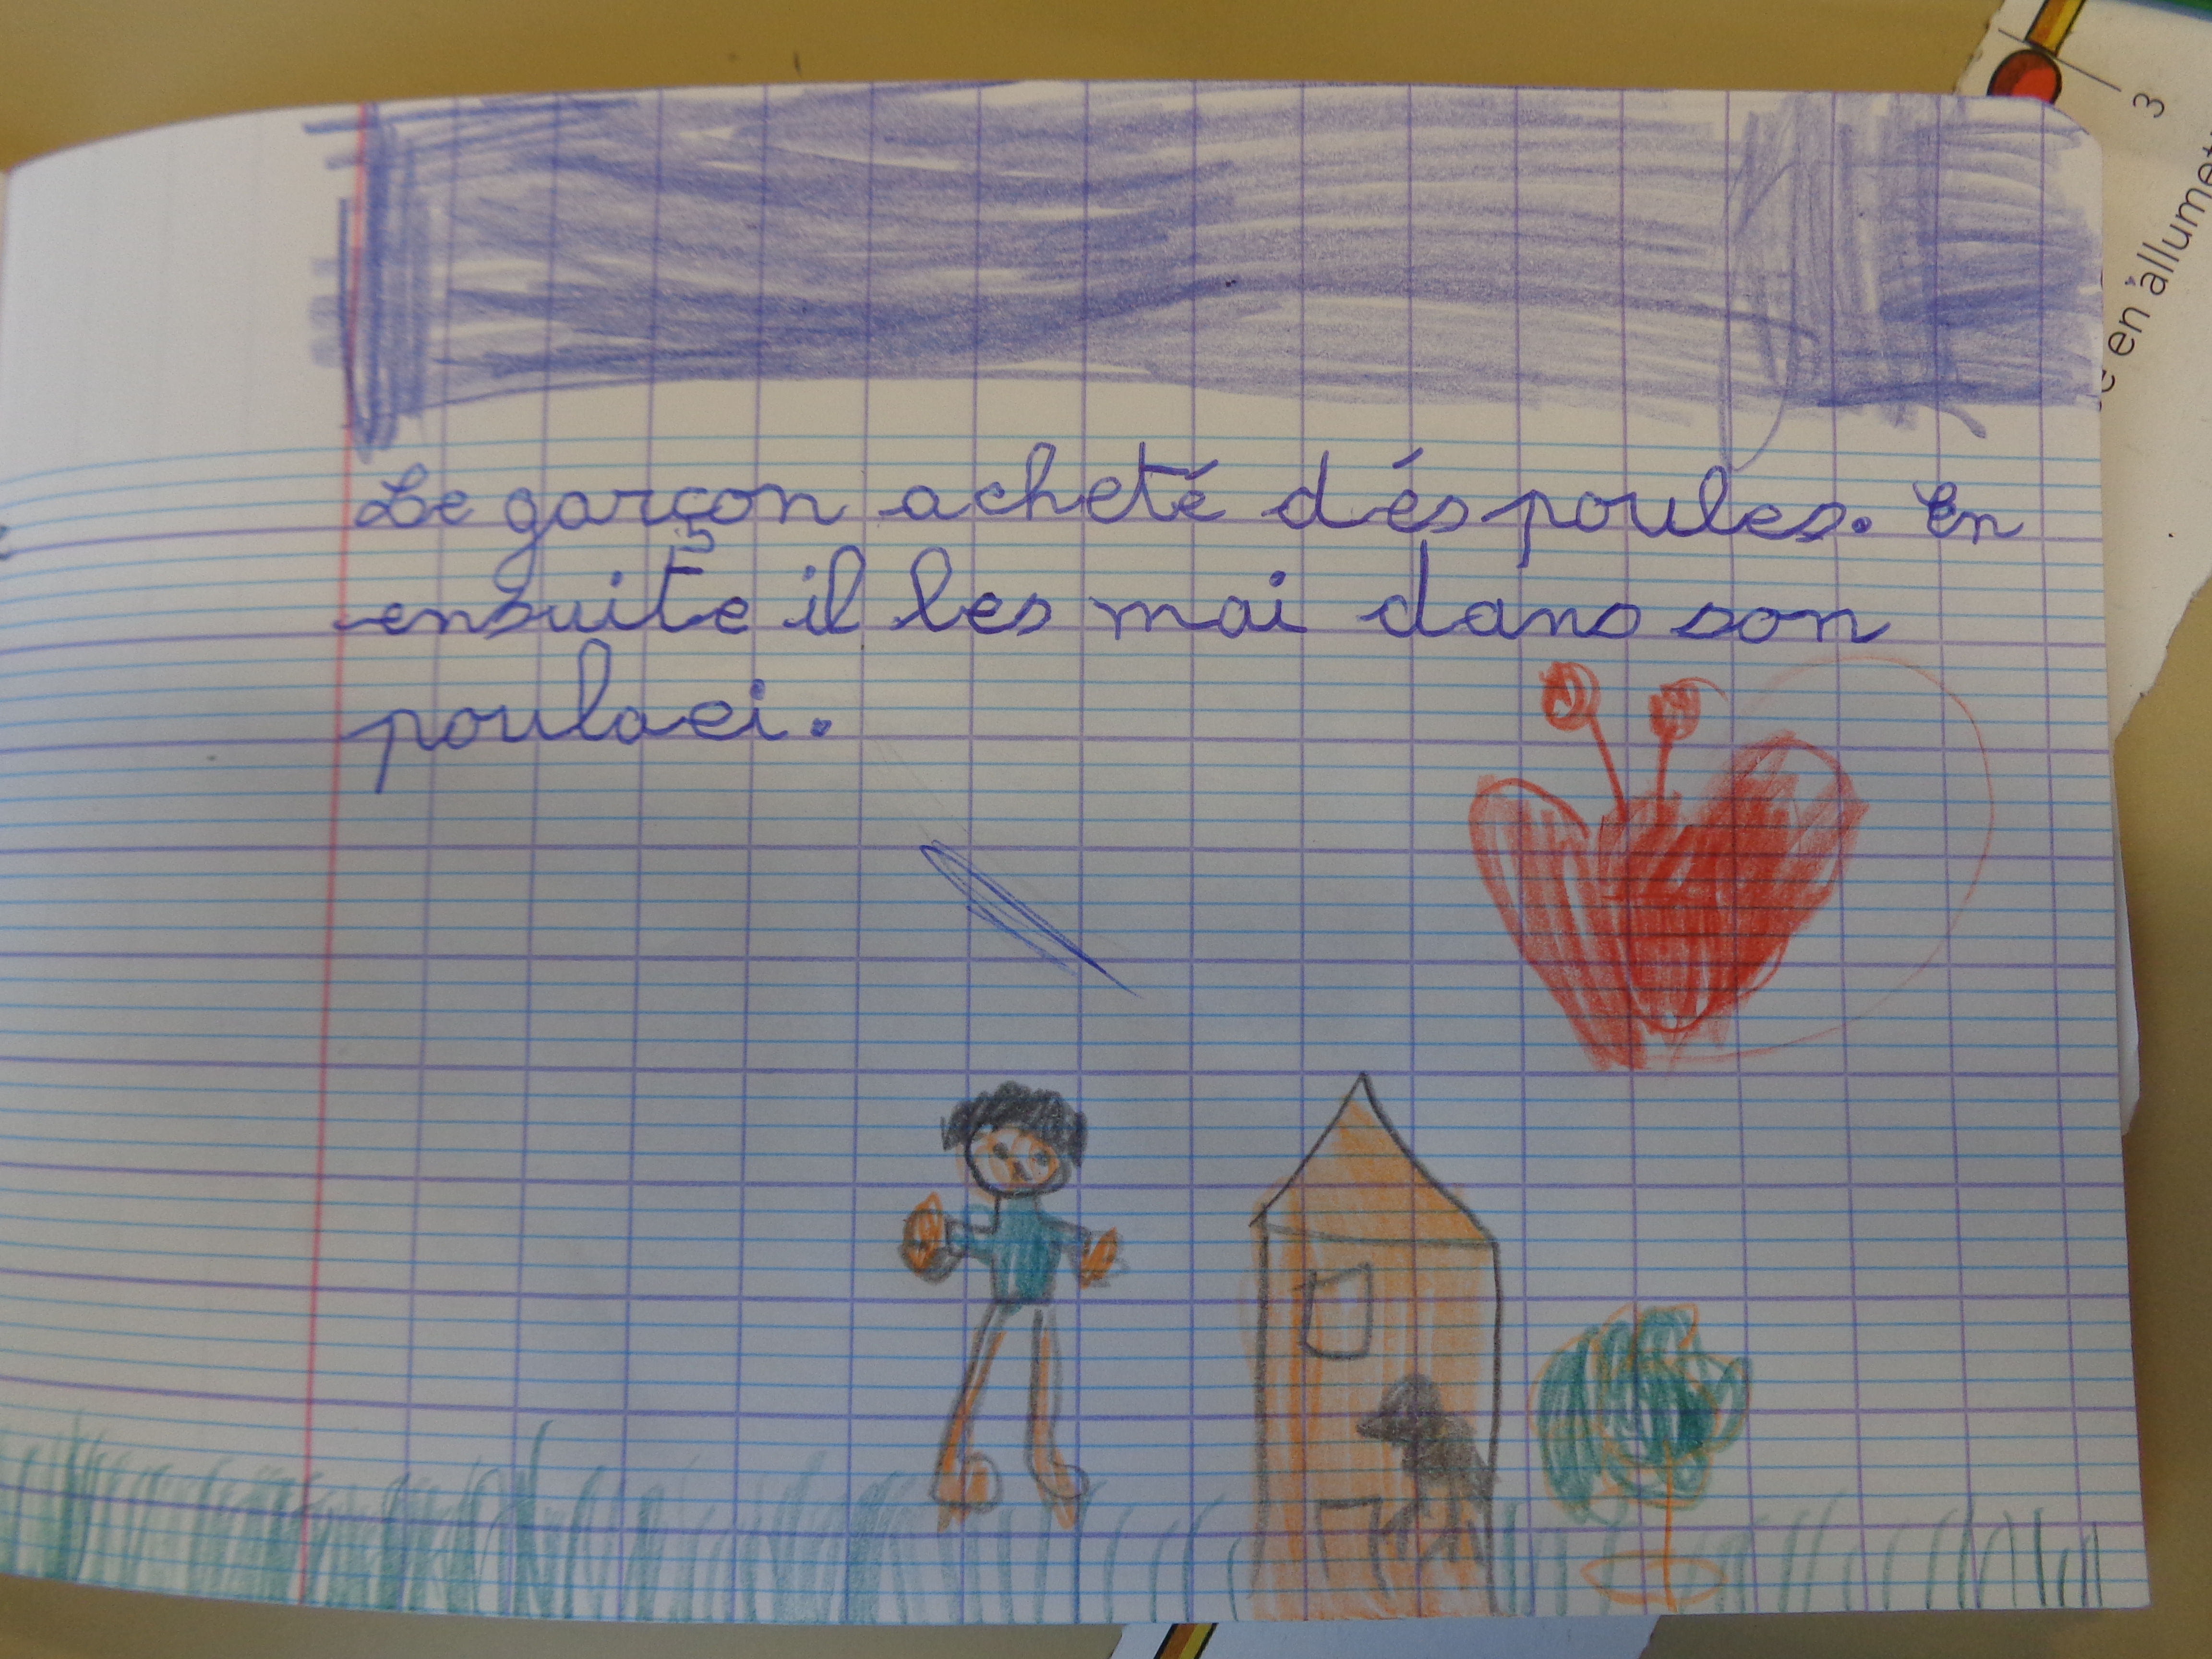 Le garçon acheté dés poules. En
ensuite il les mai dans son
poulaei.
3
e en allumet